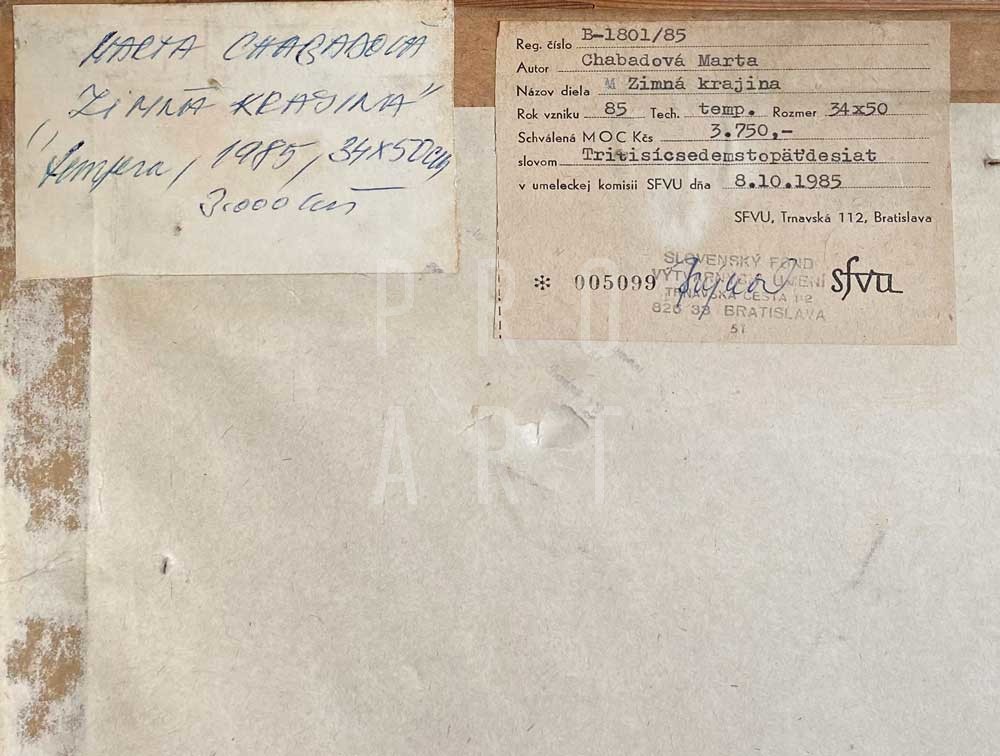 MARTA CHABADOVÁ
"ZIMNÁ KRAJINA"
tempera, 1985, 34x50cm
3.000 Kčs
Reg. číslo B-1801/85
Autor Chabadová Marta
Názov diela Zimná krajina
Rok vzniku 85 Tech. temp. Rozmer 34x50
Schválená MOC Kčs 3.750,-
slovom Tritisícsedemstopäťdesiat
v umeleckej komisii SFVU dňa 8.10.1985
SFVU, Trnavská 112, Bratislava
SLOVENSKÝ FOND
VÝTVARNÝCH UMENÍ
TRNAVSKÁ CESTA 112
826 33 BRATISLAVA
51
* 005099
sfvu
PRO
ART